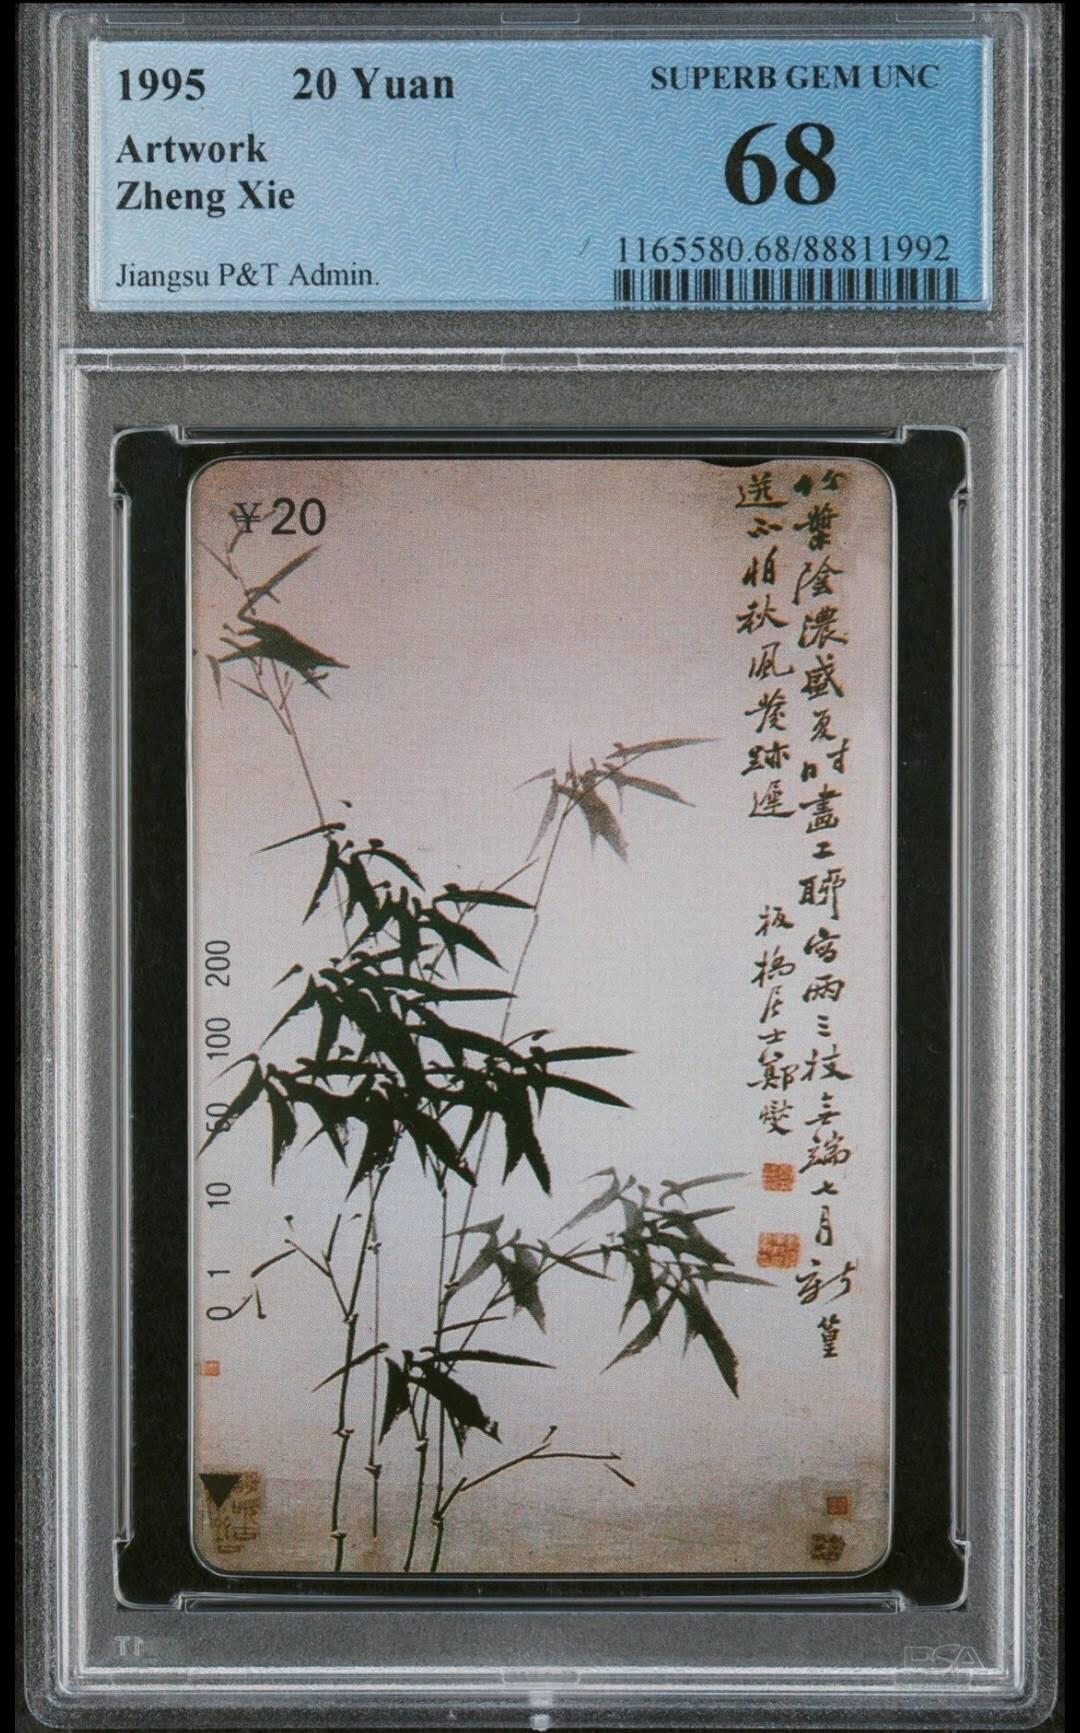 1995 20 Yuan
SUPERB GEM UNC
Artwork
68
Zheng Xie
1165580.68/88811992
Jiangsu P&T Admin.
¥20
竹葉陰濃盛夏时畫工聊寫兩三枝無端七月新篁
迸不怕秋風發跡遲
板橋居士鄭燮
200
100
50
10
1
0
PSA